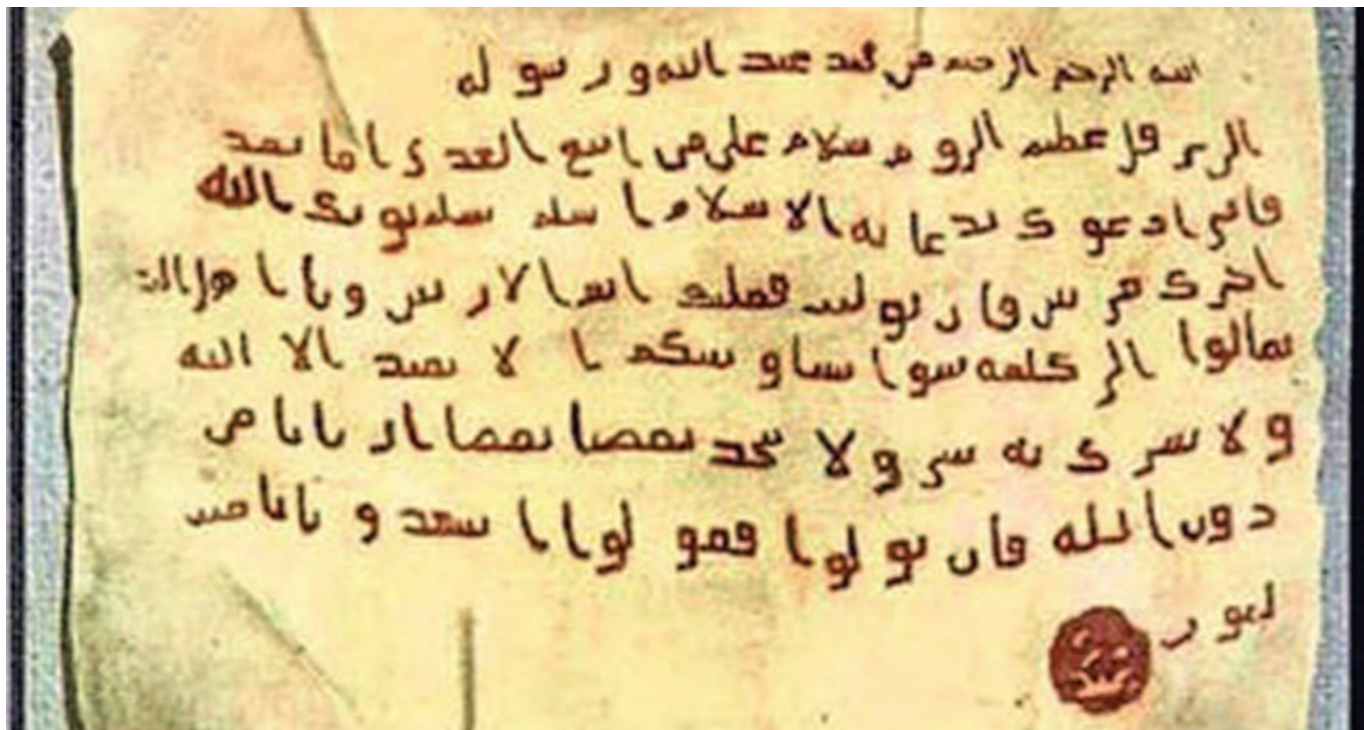 الله الرحمن الرحيم من محمد عبد الله و رسوله
الى هرقل عظيم الروم سلام على من اتبع الهدى اما بعد
فانى ادعوك بدعاية الاسلام اسلم تسلم يوتك الله
اجرك مرتين فان توليت فعليك اثم الاريسين ويا اهل الكت
تعالوا الى كلمة سوا بيننا وبينكم ا لا نعبد الا الله
ولا نشرك به شى ولا يتخذ بعضنا بعضا اربابا من
دون الله فان تولوا فقولوا اشهدوا بانا مسـ
لمون